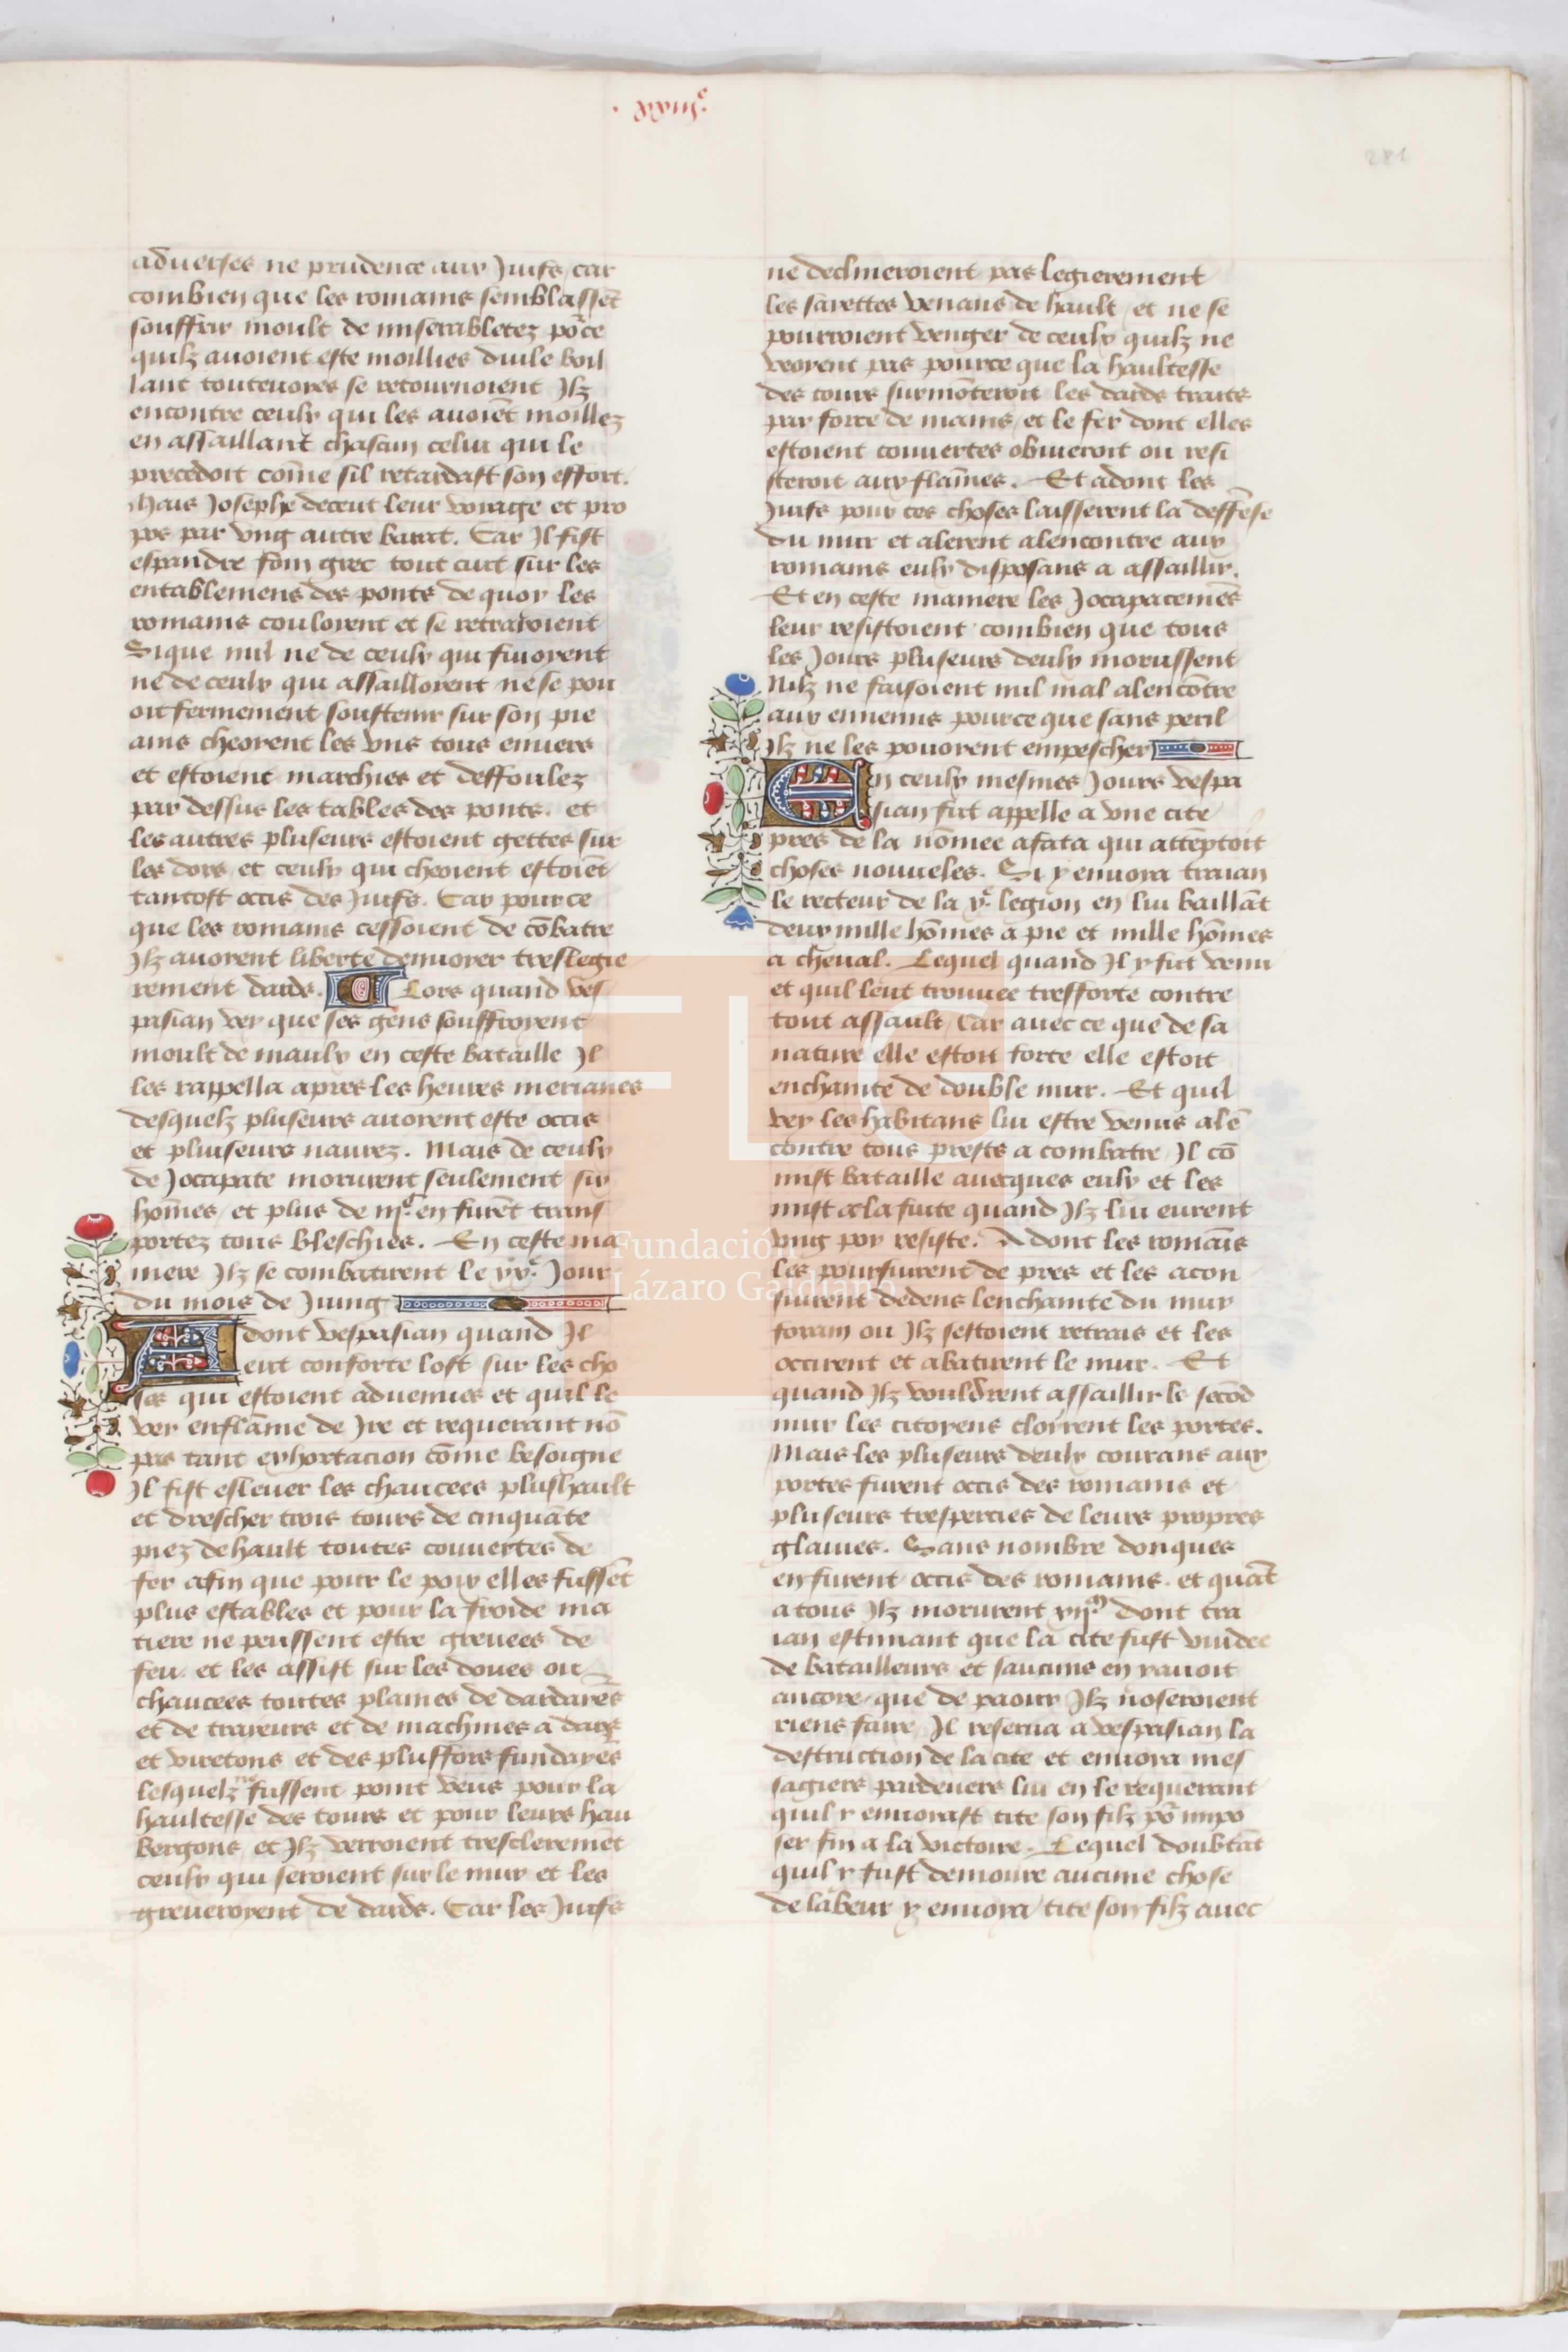 . xxiiiᵉ.
281
aduerses ne prudence aux Juifs / car
combien que les romains semblassēt
souffrir moult de miserabletez po᷑ ce
quilz auoient este moillies duile boil
lant touteuoies se retournoient Ilz
encontre ceulx qui les auoiēt moillez
en assaillant chascun celui qui le
precedoit cōme sil retardast son effort.
Mais Josephe deceut leur voiage et pro
pos par vng autre barat. Car Il fist
espandre foin grec tout cuit sur les
entablemens des ponts de quoy les
romains couloient et se retraioient
Si que nul ne de ceulx qui fuioyent
ne de ceulx qui assailloient ne se pou
oit fermement soustenir sur son pie
ains cheoient les vns tous enuers
et estoient marchies et deffoulez
par dessus les tables des ponts. et
les autres pluseurs estoient gettes sur
les dois et ceulx qui cheoient estoiēt
tantost occis des Juifs. Car pour ce
que les romains cessoient de cōbatre
Ilz auoient liberte denuoier treslegie
rement dards. A Lors quand ves
pasian vey que ses gens souffroyent
moult de maulx en ceste bataille Il
les rappella apres les heures merianes
desquelz pluseurs auoient este occis
et pluiseurs naurez. Mais de ceulx
de Jocapate morurent seulement six
hōmes / et plus de iijᶜ en furēt trans
portez tous bleschies. En ceste ma
niere Ilz se combatirent le xxᵉ. Jour
du mois de Juing
Adont vespasian quand Il
eut conforte lost sur les cho
ses qui estoient aduenues et quil le
vey enflāme de Ire et requerant nō
pas tant exhortacion cōme besoigne
Il fist esleuer les chaucees plus hault
et drescher trois tours de cinquāte
piez de hault toutes couuertes de
fer afin que pour le pois elles fussēt
plus estables et pour la froide ma
tiere ne peussent estre greuees de
feu. et les assist sur les doues ou
chaucees toutes plaines de dardaiēs
et de traieurs et de machines a dars
et viretons et des plus fors fundayēs
lesquelz ne fussent point veus pour la
haultesse des tours et pour leurs hau
bergons et Ilz verroient tresclerement
ceulx qui seroient sur le mur et les
greueroyent de dards. Car les Juifs
ne declineroient pas legierement
les saiettes venans de hault / et ne se
pourroient venger de ceulx quilz ne
veoient pas pource que la haultesse
des tours surmōteroit les dards traits
par force de mains / et le fer dont elles
estoient couuertes obuieroit ou resi
steroit aux flāmes. Et adont les
Juifs pour ces choses laisserent la deffēse
du mur et alerent alencontre aux
romains eulx disposans a assaillir.
Et en ceste maniere les Jocapaceniēs
leur resistoient combien que tous
les Jours pluseurs deulx morussent
Nilz ne faisoient nul mal alencōtre
aux ennemis pource que sans peril
Ilz ne les pouoient empescher
En ceulx mesmes Jours vespa
sian fut appelle a vne cite
pres de la nōmee asata qui attēptoit
choses nouueles. Si y enuoia traian
le recteur de la xᵉ. legion en lui baillāt
deux mille hōmes a pie et mille hōmes
a cheual. Lequel quand Il y fut venu
et quil leut trouuee tresforte contre
tout assault / Car auec ce que de sa
nature elle estoit forte elle estoit
enchainte de double mur. Et quil
vey les habitans lui estre venus alē
contre tous prests a combatre / Il cō
mist bataille auecques eulx et les
mist a la fuite quand Ilz lui eurent
vng poy resiste. Adont les romaīs
les poursiuirent de pres et les acon
siuirent dedens lenchainte du mur
forain ou Ilz sestoient retrais et les
occirent et abatirent le mur. Et
quand Ilz vouldrent assaillir le secōd
mur les citoyens cloyrent les portes.
Mais les pluseurs deulx courans aux
portes furent occis des romains et
pluseurs tresperciés de leurs propres
glaiues. Sans nombre donques
en furent occis des romains. et quāt
a tous Ilz morurent xijᵐ dont tra
ian estimant que la cite fust vuidee
de batailleurs et saucuns en y auoit
ancore / que de paour Ilz noseroient
riens faire / Il reserua a vespasian la
destruction de la cite et enuoia mes
sagiers pardeuers lui en le requerant
quil y enuoiast tite son filz po᷑ impo
ser fin a la victoire. Lequel doubtāt
quil y fust demoure aucune chose
de labeur y enuoia tite son filz auec
FLG
Fundación
Lázaro Galdiano